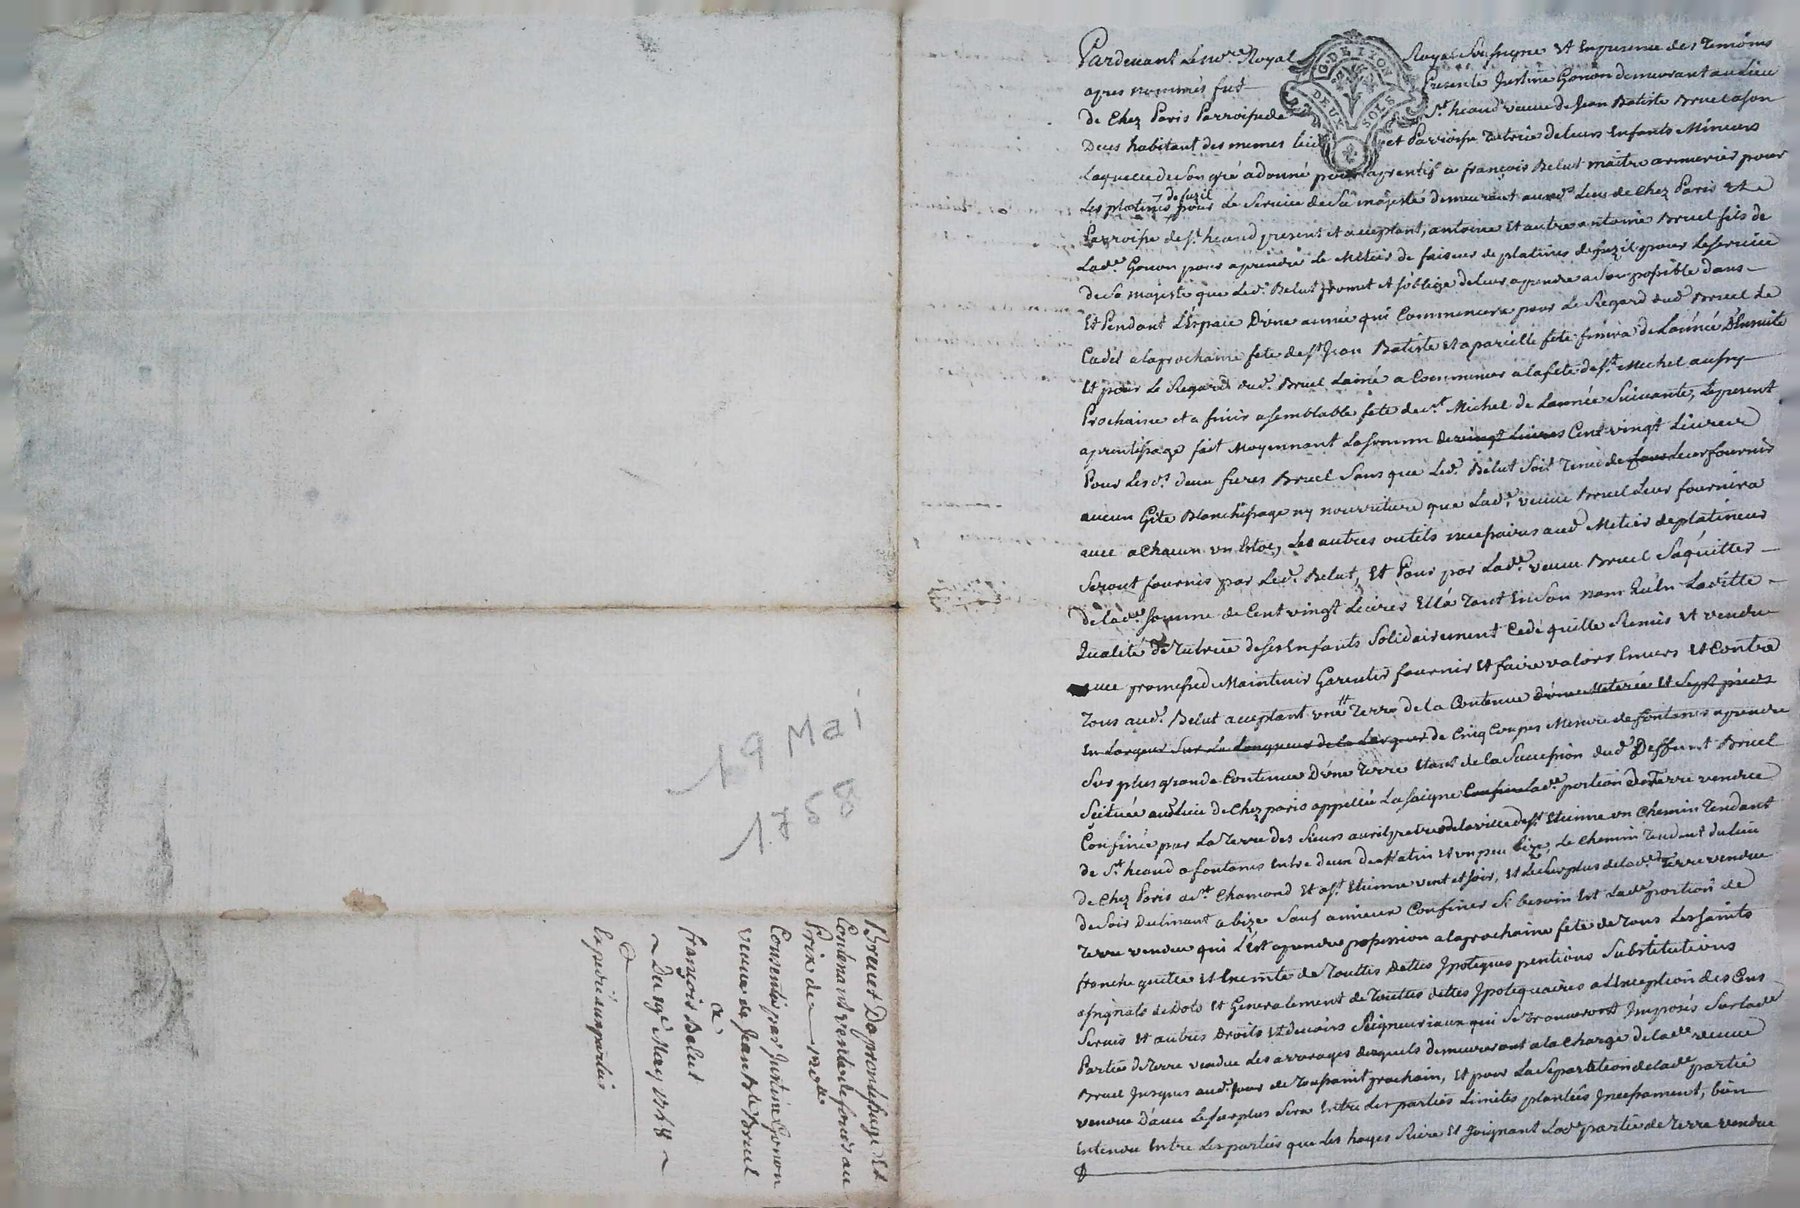 Pardevant le no.re Royal Royal Soussigne Et En presence des Temoins
apres nommés fut Presente Justine Gonon demeurant au Lieu
de Chez Paris Parroisse de St heand veuve de Jean Batiste Bruel a son
Deces habitant des memes lieu et Parroisse Tutrice de leurs Enfants Mineurs
Laquelle de Son gré a donné pour aprentis a françois Belut maitre armurier pour
de fuzil
Les platines pour Le Service de Sa majesté demeurant aud. Lieu de Chez Paris Et
Parroisse de St. heand present et acceptant, antoine Et autre antoine Bruel fils de
Lad.e Gonon pour aprendre Le Metier de faiseur de platines de fuzil pour Le Service
de Sa majesté que Led. Belut promet et s'oblige de leur aprendre a Son possible dans
Et Pendant L'Espace D'une année qui Commencera pour Le Regard dud. Bruel Le
Cadet a la prochaine fete de St Jean Batiste Et a pareille fete finira de L'année D'Ensuite
Et pour Le Regard dud. Bruel Lainé a Commencer a la fete de St. Michel aussy
Prochaine et a finir a semblable fete de St. Michel de Lannée Suivante, Le present
aprentissage fait Moyennant La somme de vingt Livres Cent vingt Livres
Pour Les d. deux freres Bruel Sans que Led. Belut Soit Tenu de leur fournir
aucun Gite Blanchissage ny nourriture que Lad.e veuve Bruel Leur fournira
avec a Chacun un Etoc, Les autres outils necessaires aud. Metier de platineur
Seront fournis par Led. Belut, Et Pour par Lad.e veuve Bruel S'aquitter
de lad.e somme de Cent vingt Livres Ella Tant En Son nom qu'En Laditte
Qualité de Tutrice de ses Enfants Solidairement Cedé quitté Remis Et vendu
avec promesse de Maintenir Garentir fournir Et faire valoir Envers Et Contre
Tous aud. Belut acceptant une Terre de la Contenue D'une Meterée Et Sept pieds
En Largeur Sur La Longueur de la Largeur de Cinq Coupes Mesure de fontanes a prendre
Sur plus grande Contenue D'une Terre Etant de la Succession dud. Deffunt Bruel
Scituée aud. Lieu de Chez paris appellée La Saigne Confine Lad.e portion de Terre vendue
Confinée par La Terre des Sieurs pretres de la ville de St. Etienne un Chemin Tendant
de St. heand a fontanes Entre deux de Matin Et un peu bize, Le Chemin Tendant du Lieu
de Chez Paris a St. Chamond Et a St. Etienne vent et Soir, Et Le Surplus de lad.e Terre vendue
de Soir Declinant a bize Sauf a mieux Confiner Si besoin Est Lad.e portion de
Terre vendue qui L'Est a prendre possession a la prochaine fete de Tous Les Saints
franche quitte et Exemte de Touttes dettes Ipoteques pentions Substitutions
assignats de Dots Et Generalement de Touttes dettes Ipotequaires a L'Exception des Cens
Servis Et autres Droits Et devoirs Seigneuriaux qui Se Trouveront Imposés Sur Lad.e
Partie de Terre vendue Les arrerages desquels demeureront a la Charge de lad.e veuve
Bruel Jusques aud. Jour de Toussaint prochain, Et pour La Separation de lad.e partie
vendue D'avec Le Surplus Sera Entre Les parties Limites plantées Incessament, bien
Entendu Entre Les parties que Les hayes Et Joignant Lad.e partie de Terre vendue
G. DE LYON
DEUX SOLS
19 Mai
1768
Brevet Daprentissage Et
Contenant vente de fonds au
Prix de 120 ll
Consenti par Justine Gonon
veuve de Jean Bte Bruel
a
françois Belut
Du 19e May 1768
Expedié aux parties